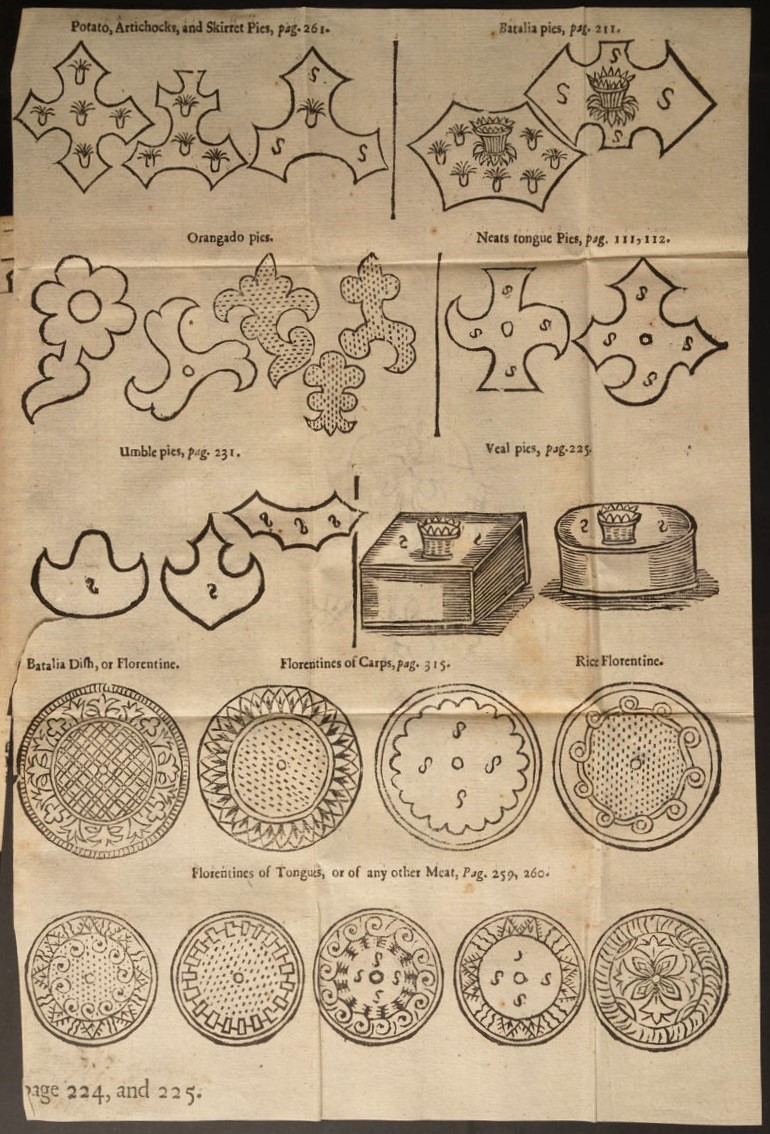 Potato, Artichocks, and Skirret Pies, pag. 261.
Batalia pies, pag. 211.
Orangado pies.
Neats tongue Pies, pag. 111, 112.
Umble pies, pag. 231.
Veal pies, pag. 225.
Batalia Dish, or Florentine.
Florentines of Carps, pag. 315.
Rice Florentine.
Florentines of Tongues, or of any other Meat, Pag. 259, 260.
page 224, and 225.